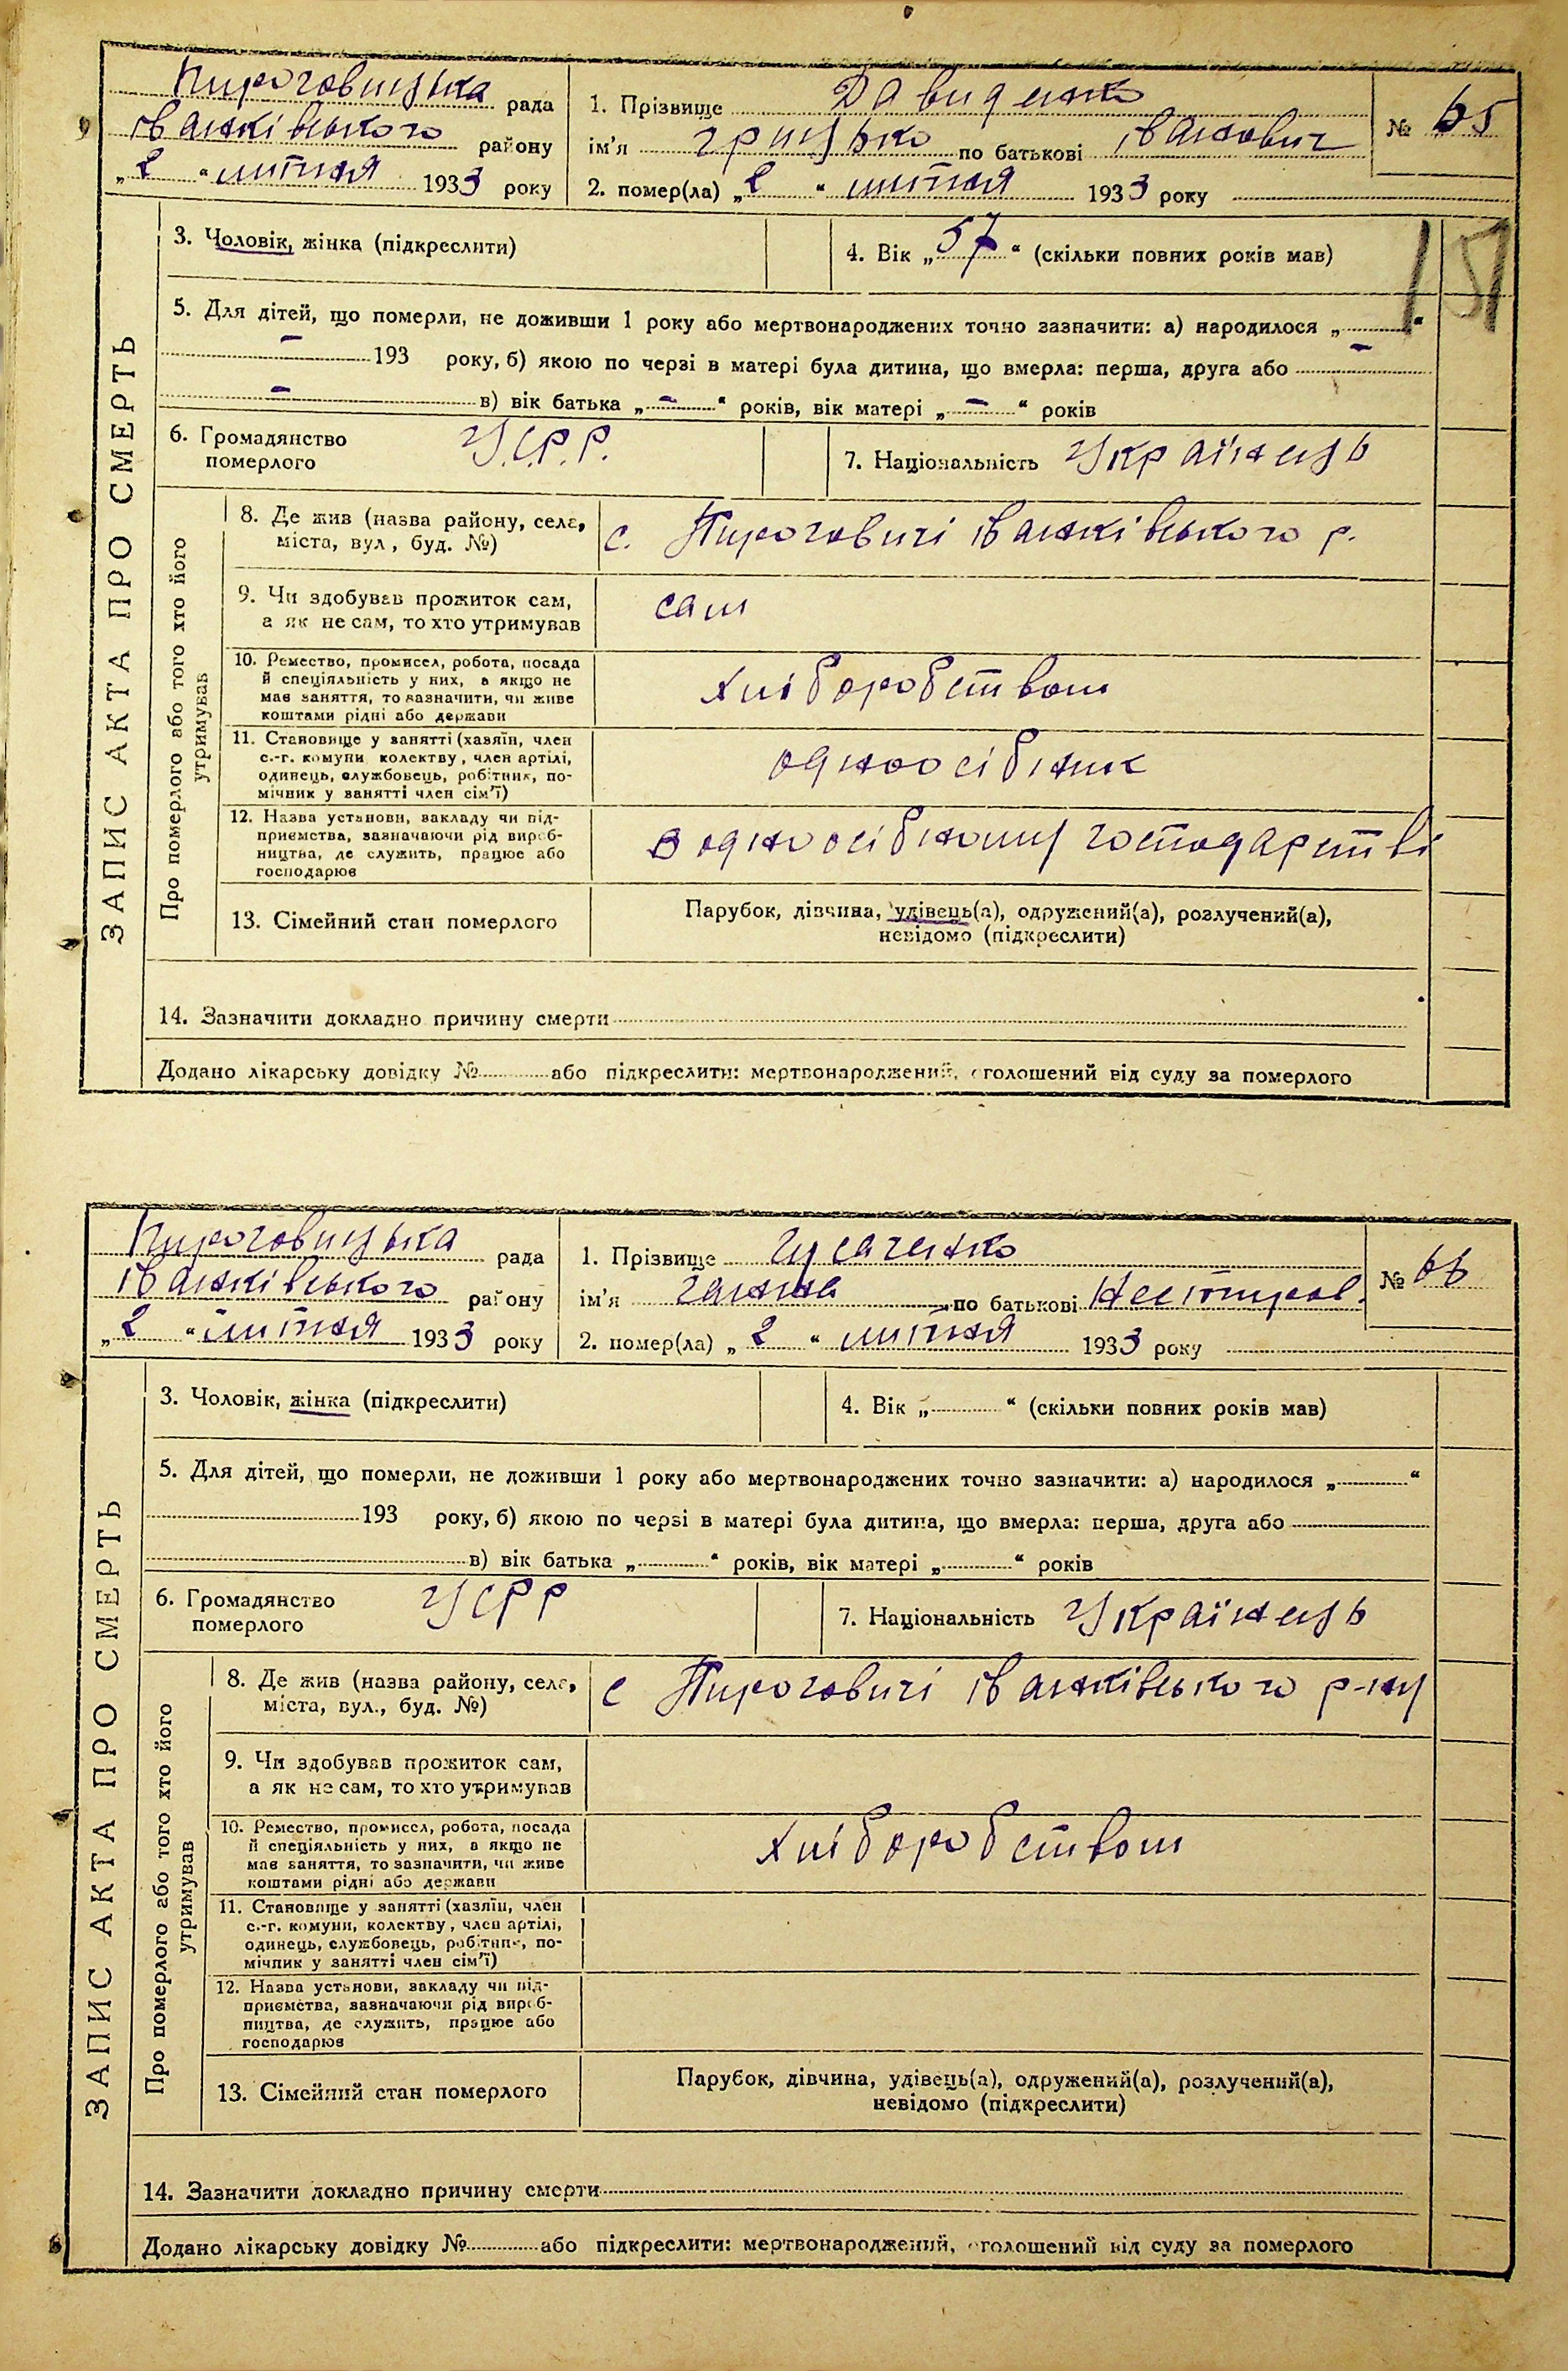 Пироговицька рада
Іванківського району
„2“ липня 1933 року
1. Прізвище Давиденко
ім'я Грицько по батькові Іванович
2. помер(ла) „2“ липня 1933 року
№ 65
3. Чоловік, жінка (підкреслити)
4. Вік „57“ (скільки повних років мав)
5. Для дітей, що померли, не доживши 1 року або мертвонароджених точно зазначити: а) народилося „ “
– 193 року, б) якою по черзі в матері була дитина, що вмерла: перша, друга або –
– в) вік батька „–“ років, вік матері „–“ років
6. Громадянство
померлого
У.С.Р.Р.
7. Національність Українець
ЗАПИС АКТА ПРО СМЕРТЬ
Про померлого або того хто його
утримував
8. Де жив (назва району, села,
міста, вул, буд. №)
с. Пироговичі Іванківського р.
9. Чи здобував прожиток сам,
а як не сам, то хто утримував
сам
10. Ремество, промисел, робота, посада
й спеціяльність у них, а якщо не
має заняття, то зазначити, чи живе
коштами рідні або держави
хліборобством
11. Становище у занятті (хазяїн, член
с.-г. комуни колектву, член артілі,
одинець, службовець, робітник, по-
мічник у занятті член сім'ї)
одноосібник
12. Назва установи, закладу чи під-
приємства, зазначаючи рід вироб-
ництва, де служить, працює або
господарює
в одноосібному господарстві
13. Сімейний стан померлого
Парубок, дівчина, удівець(а), одружений(а), розлучений(а),
невідомо (підкреслити)
14. Зазначити докладно причину смерти
Додано лікарську довідку № або підкреслити: мертвонароджений, оголошений від суду за померлого
Пироговицька рада
Іванківського району
„2“ липня 1933 року
1. Прізвище Гусаченко
ім'я Ганна по батькові Нестиров.
2. помер(ла) „2“ липня 1933 року
№ 66
3. Чоловік, жінка (підкреслити)
4. Вік „ “ (скільки повних років мав)
5. Для дітей, що померли, не доживши 1 року або мертвонароджених точно зазначити: а) народилося „ “
193 року, б) якою по черзі в матері була дитина, що вмерла: перша, друга або
в) вік батька „ “ років, вік матері „ “ років
6. Громадянство
померлого
УСРР
7. Національність Українець
ЗАПИС АКТА ПРО СМЕРТЬ
Про померлого або того хто його
утримував
8. Де жив (назва району, села,
міста, вул., буд. №)
с Пироговичі Іванківського р-ну
9. Чи здобував прожиток сам,
а як не сам, то хто утримував
10. Ремество, промисел, робота, посада
й спеціяльність у них, а якщо не
має заняття, то зазначити, чи живе
коштами рідні або держави
хліборобством
11. Становище у занятті (хазяїн, член
с.-г. комуни, колектву, член артілі,
одинець, службовець, робітник, по-
мічник у занятті член сім'ї)
12. Назва установи, закладу чи під-
приємства, зазначаючи рід вироб-
ництва, де служить, працює або
господарює
13. Сімейний стан померлого
Парубок, дівчина, удівець(а), одружений(а), розлучений(а),
невідомо (підкреслити)
14. Зазначити докладно причину смерти
Додано лікарську довідку № або підкреслити: мертвонароджений, оголошений від суду за померлого